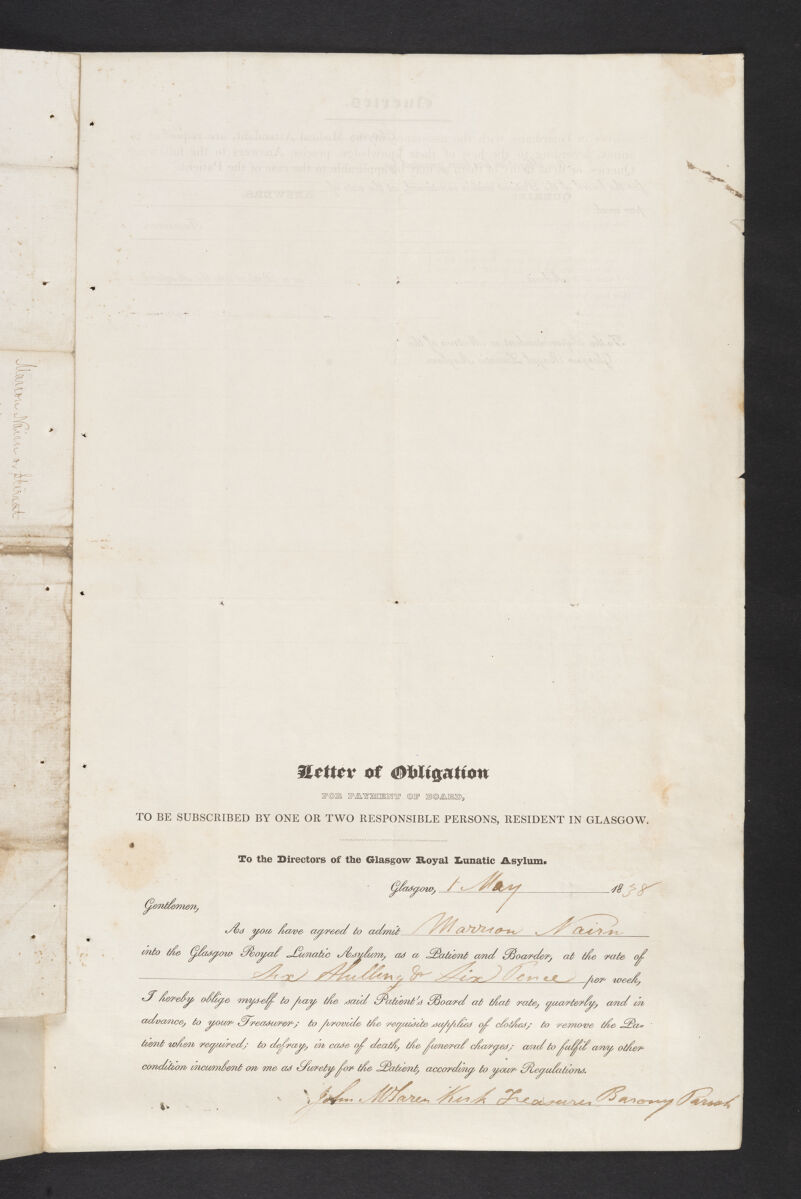 Letter of Obligation
FOR PAYMENT OF BOARD,
TO BE SUBSCRIBED BY ONE OR TWO RESPONSIBLE PERSONS, RESIDENT IN GLASGOW.
To the Directors of the Glasgow Royal Lunatic Asylum.
Glasgow, 1 May 1838
Gentlemen,
As you have agreed to admit Marrion Nairn
into the Glasgow Royal Lunatic Asylum, as a Patient and Boarder, at the rate of
Six Shilling & Six Pence per week,
I hereby oblige myself to pay the said Patient's Board at that rate, quarterly, and in
advance, to your Treasurer; to provide the requisite supplies of clothes; to remove the Pa-
tient when required; to defray, in case of death, the funeral charges; and to fulfil any other
condition incumbent on me as Surety for the Patient, according to your Regulations.
John McLaren Kirk Treasurer Barony Parish